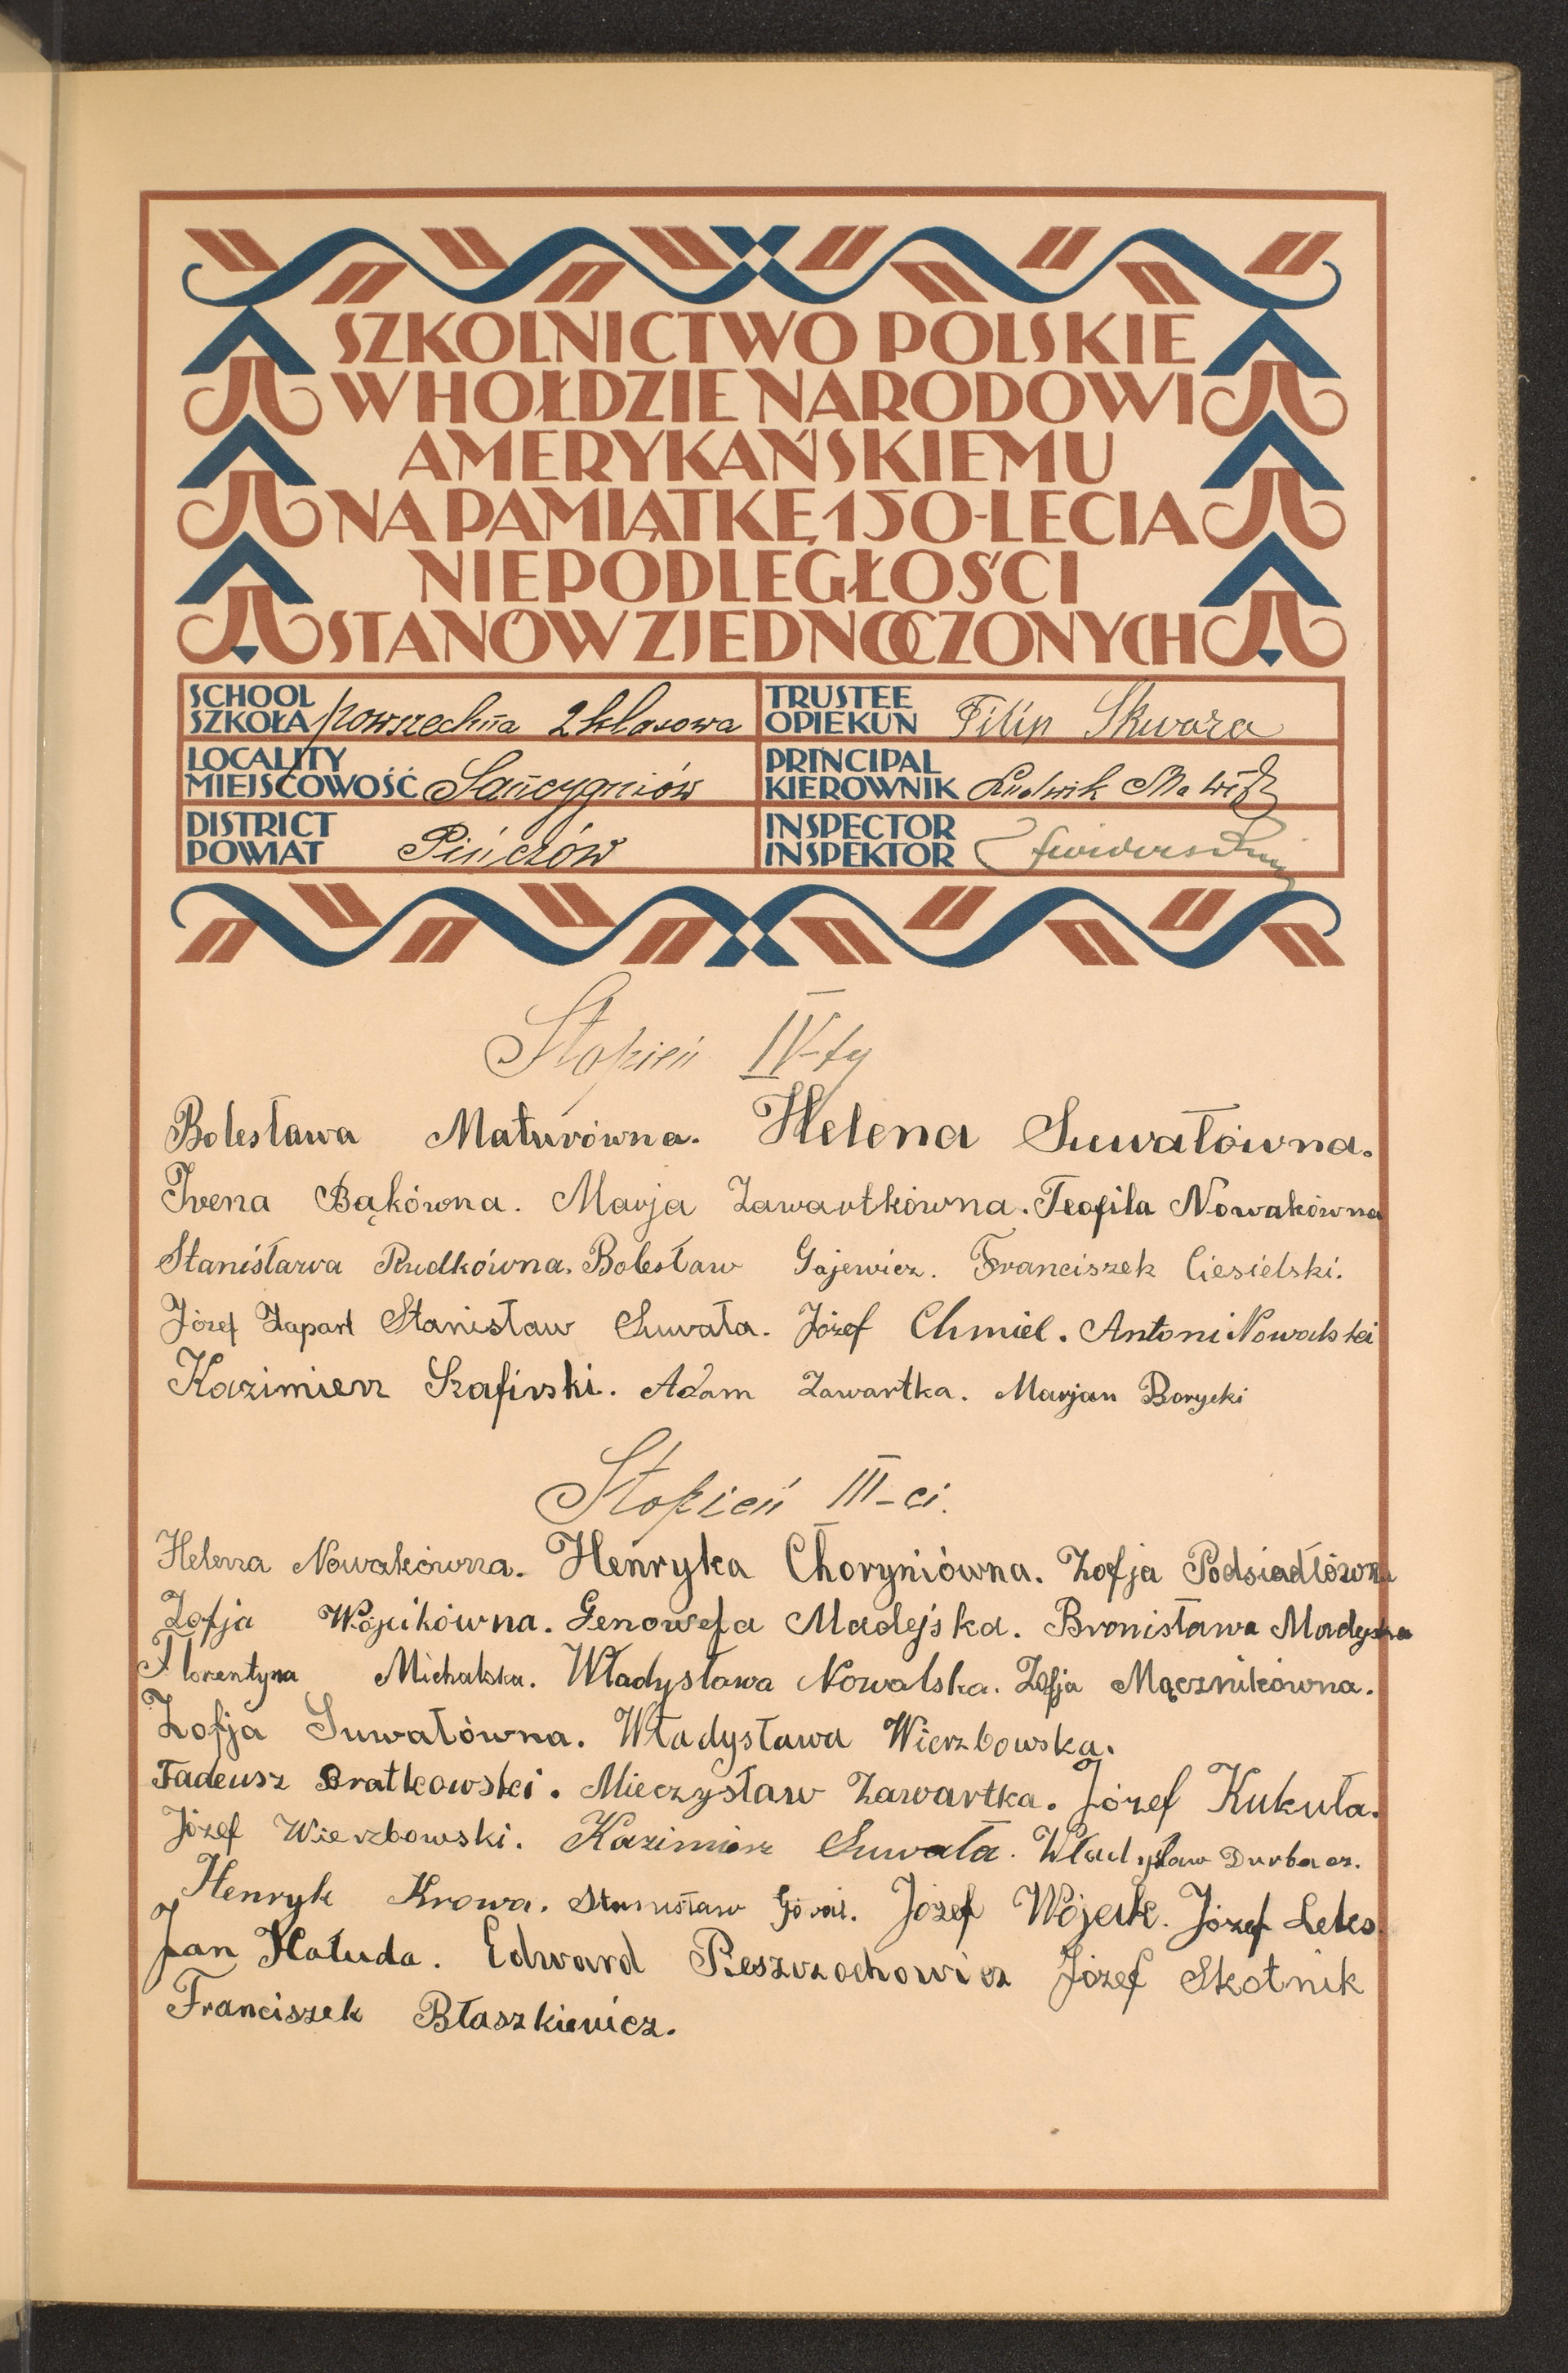 SZKOLNICTWO POLSKIE
W HOŁDZIE NARODOWI
AMERYKAŃSKIEMU
NA PAMIĄTKĘ 150-LECIA
NIEPODLEGŁOŚCI
STANÓW ZJEDNOCZONYCH
SCHOOL
SZKOŁA powszechna 2 klasowa
TRUSTEE
OPIEKUN Filip Skwara
LOCALITY
MIEJSCOWOŚĆ Sancygniów
PRINCIPAL
KIEROWNIK Ludwik
DISTRICT
POWIAT Pińczów
INSPECTOR
INSPEKTOR
Stopień IV-ty
Bolesława Maturówna. Helena Suwałówna.
Irena Bąkówna. Marja Zawartkówna. Teofila Nowakówna
Stanisława Rudkówna. Bolesław Gajewicz. Franciszek Ciesielski.
Józef Zapart Stanisław Suwała. Józef Chmiel. Antoni Nowalski
Kazimierz Szafirski. Adam Zawartka. Marjan Borycki
Stopień III-ci.
Helena Nowakówna. Henryka Choryniówna. Zofja Podsiadłówna
Zofja Wójcikówna. Genowefa Madejska. Bronisława Madejska
Florentyna Michalska. Władysława Nowalska. Zofja Mącznikówna.
Zofja Suwałówna. Władysława Wierzbowska.
Tadeusz Bratkowski. Mieczysław Zawartka. Józef Kukuła.
Józef Wierzbowski. Kazimierz Suwała. Władysław Durbacz.
Henryk Krowa. Stanisław Góral. Józef Wójcik. Józef Leks.
Jan Hałuda. Edward Reszrzochowicz Józef Skotnik
Franciszek Błaszkiewicz.